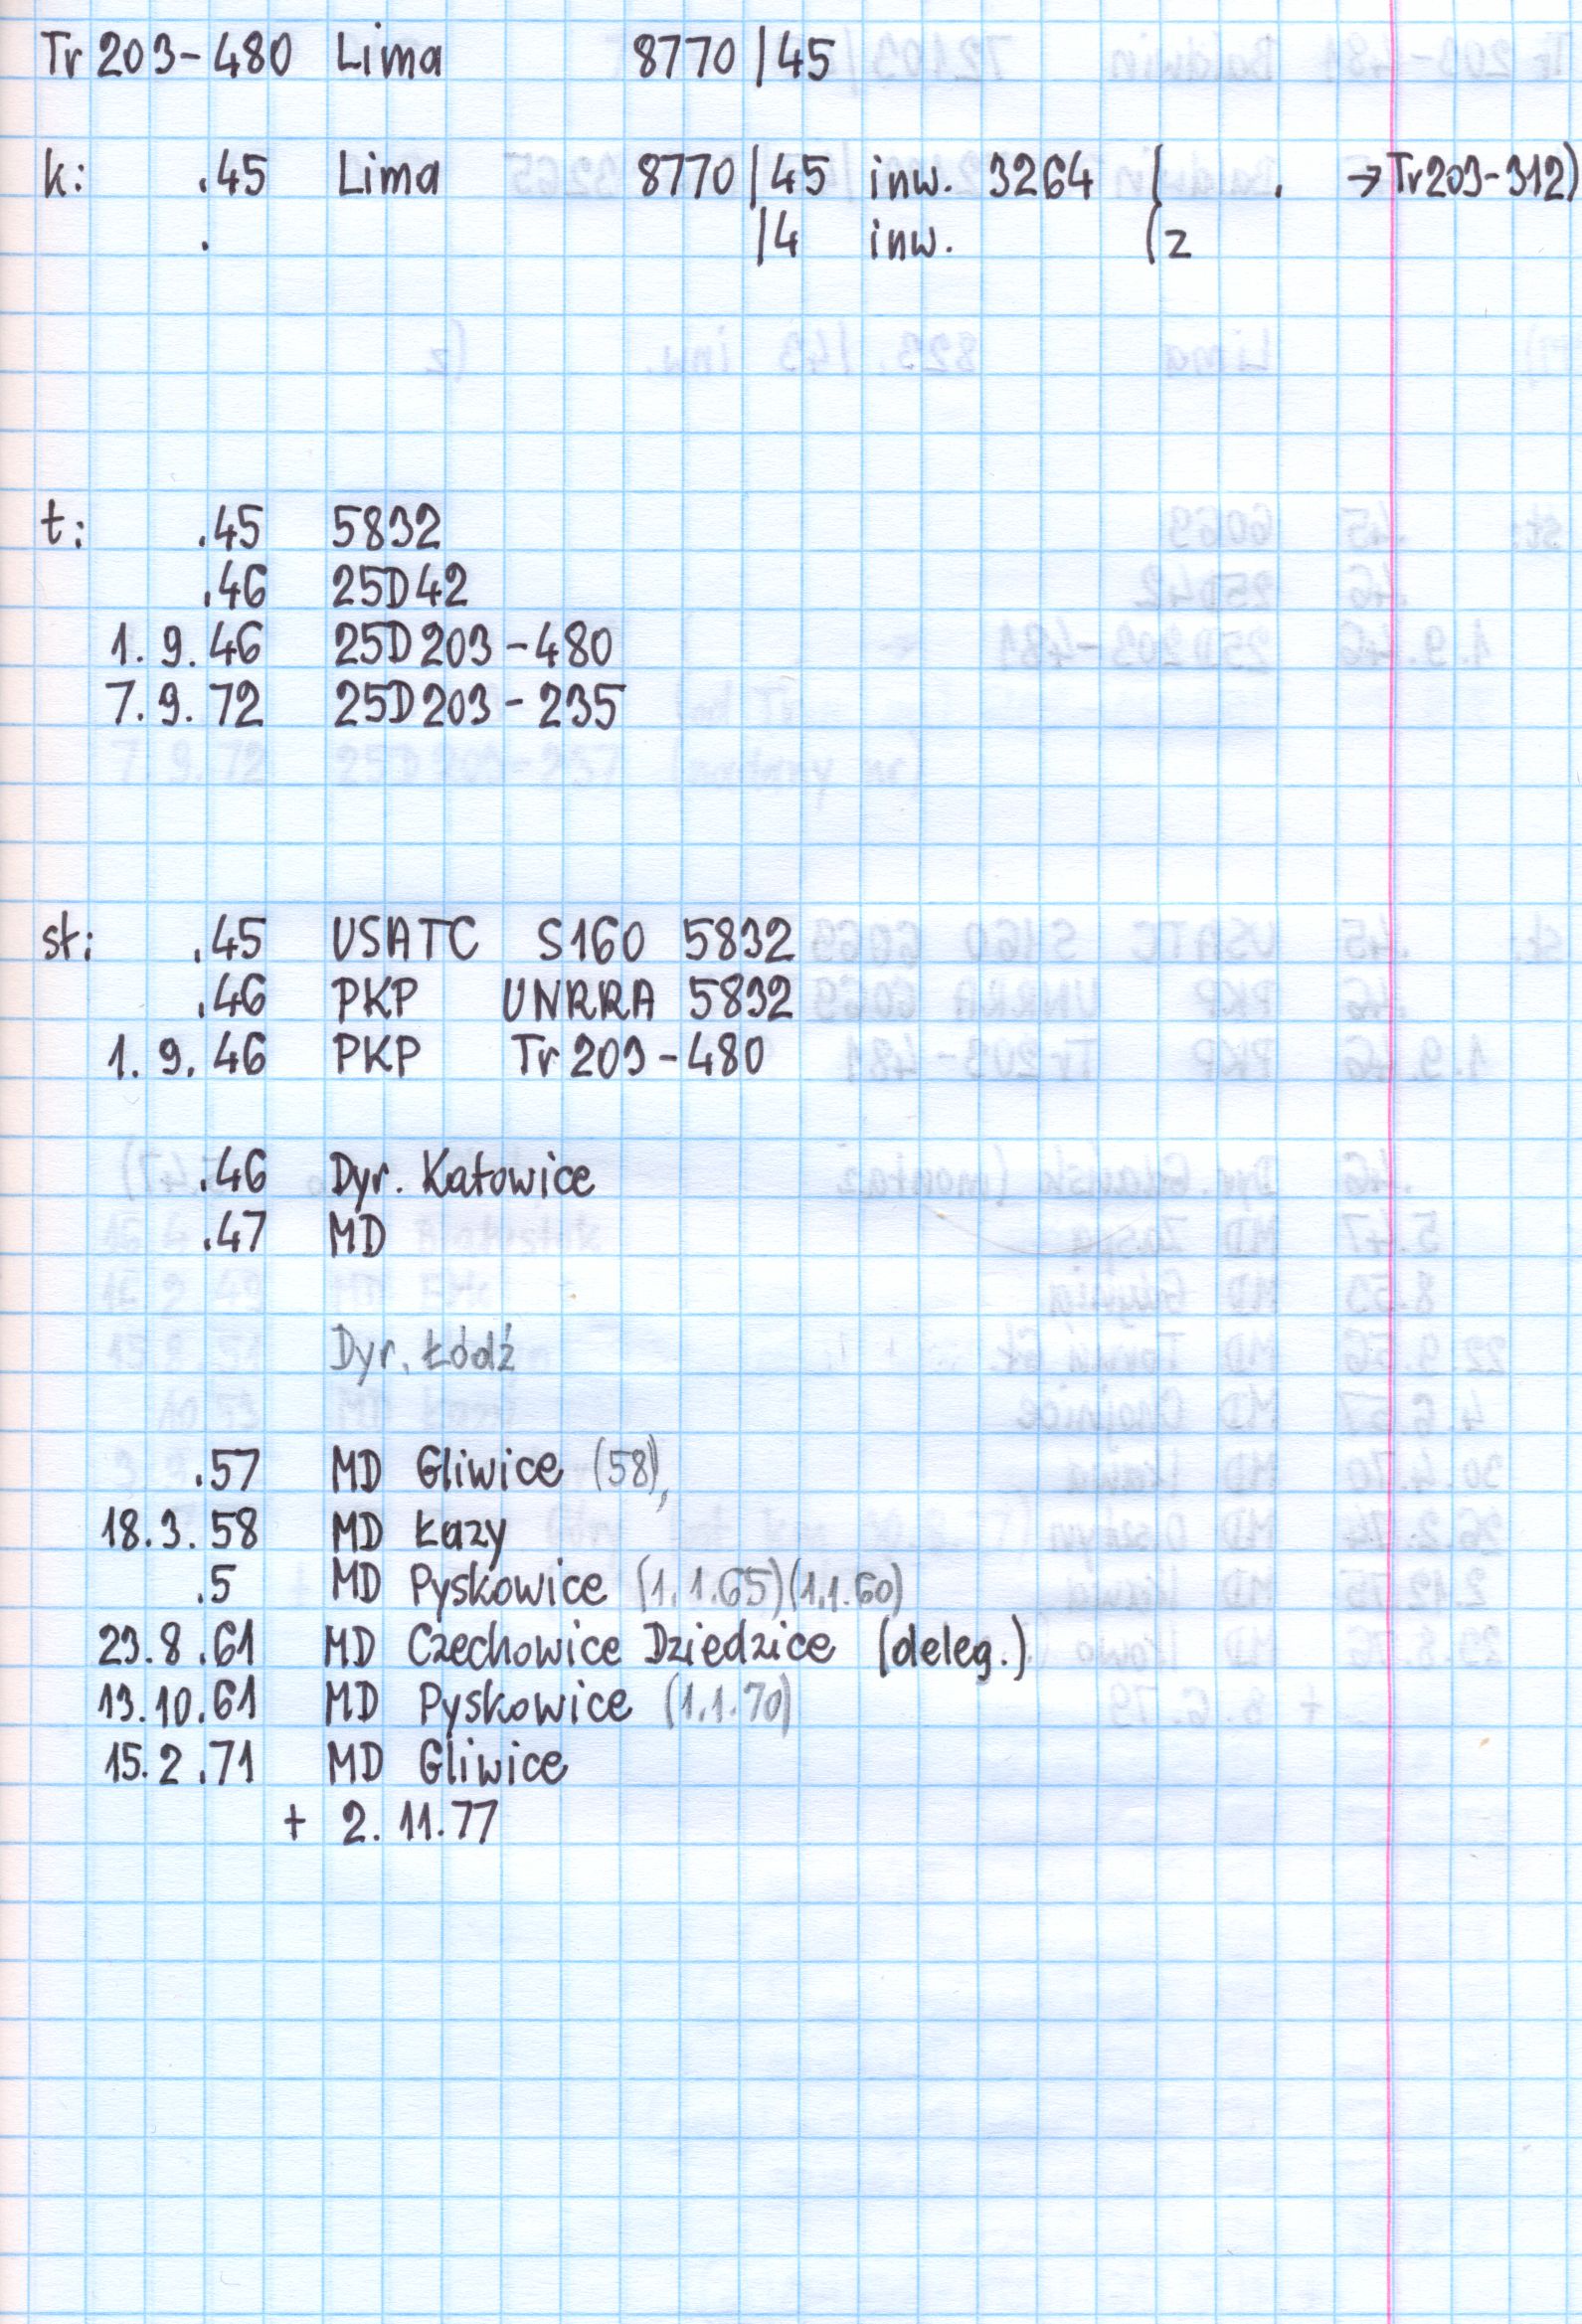 Tr 203-480 Lima 8770/45
k: .45 Lima 8770/45 inw. 3264 ( . → Tr203-312)
. /4 inw. (z
t: .45 5832
.46 25D42
1. 9. 46 25D203-480
7. 9. 72 25D203-235
st: .45 USATC S160 5832
.46 PKP UNRRA 5832
1. 9. 46 PKP Tr203-480
.46 Dyr. Katowice
.47 MD
Dyr. Łódź
.57 MD Gliwice (58),
18.3.58 MD Łazy
.5 MD Pyskowice (1.1.65)(1.1.60)
23.8.61 MD Czechowice Dziedzice (deleg.)
13.10.61 MD Pyskowice (1.1.70)
15.2.71 MD Gliwice
+ 2. 11. 77